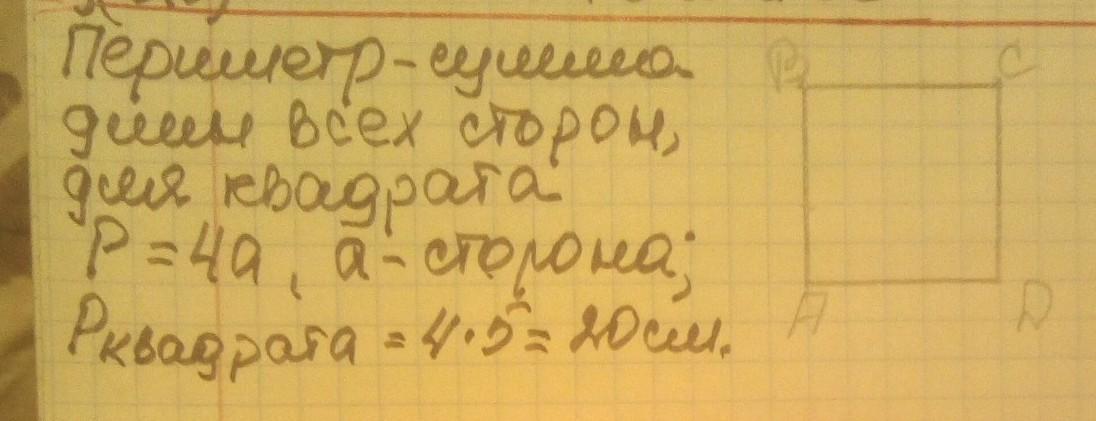 Периметр - сумма
длин всех сторон,
для квадрата
P = 4a, a - сторона;
Pквадрата = 4·5 = 20 см.
B C
A D